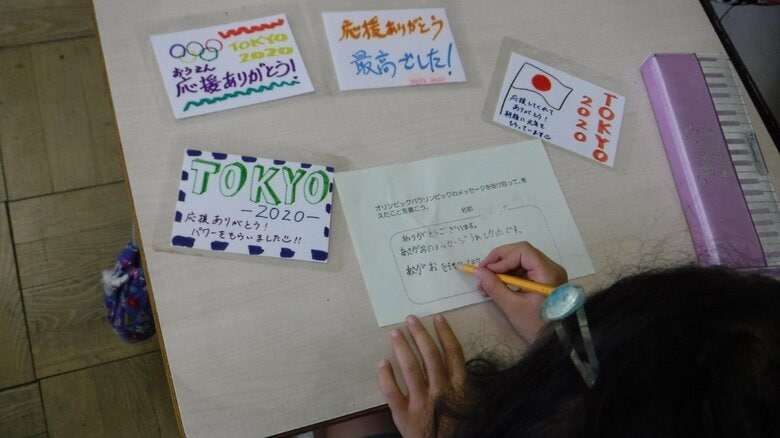 TOKYO
2020
おうえん
応援ありがとう!
応援ありがとう
最高でした!
応援してくれて
ありがとう!
TOKYO
2020
TOKYO
-2020-
応援ありがとう!
パワーをもらいました!!
オリンピックパラリンピックのメッセージを受け取って、考
えたことを書こう。
名前
ありがとうございます。
あさがおのメッセージうれしかったです。
あさがお